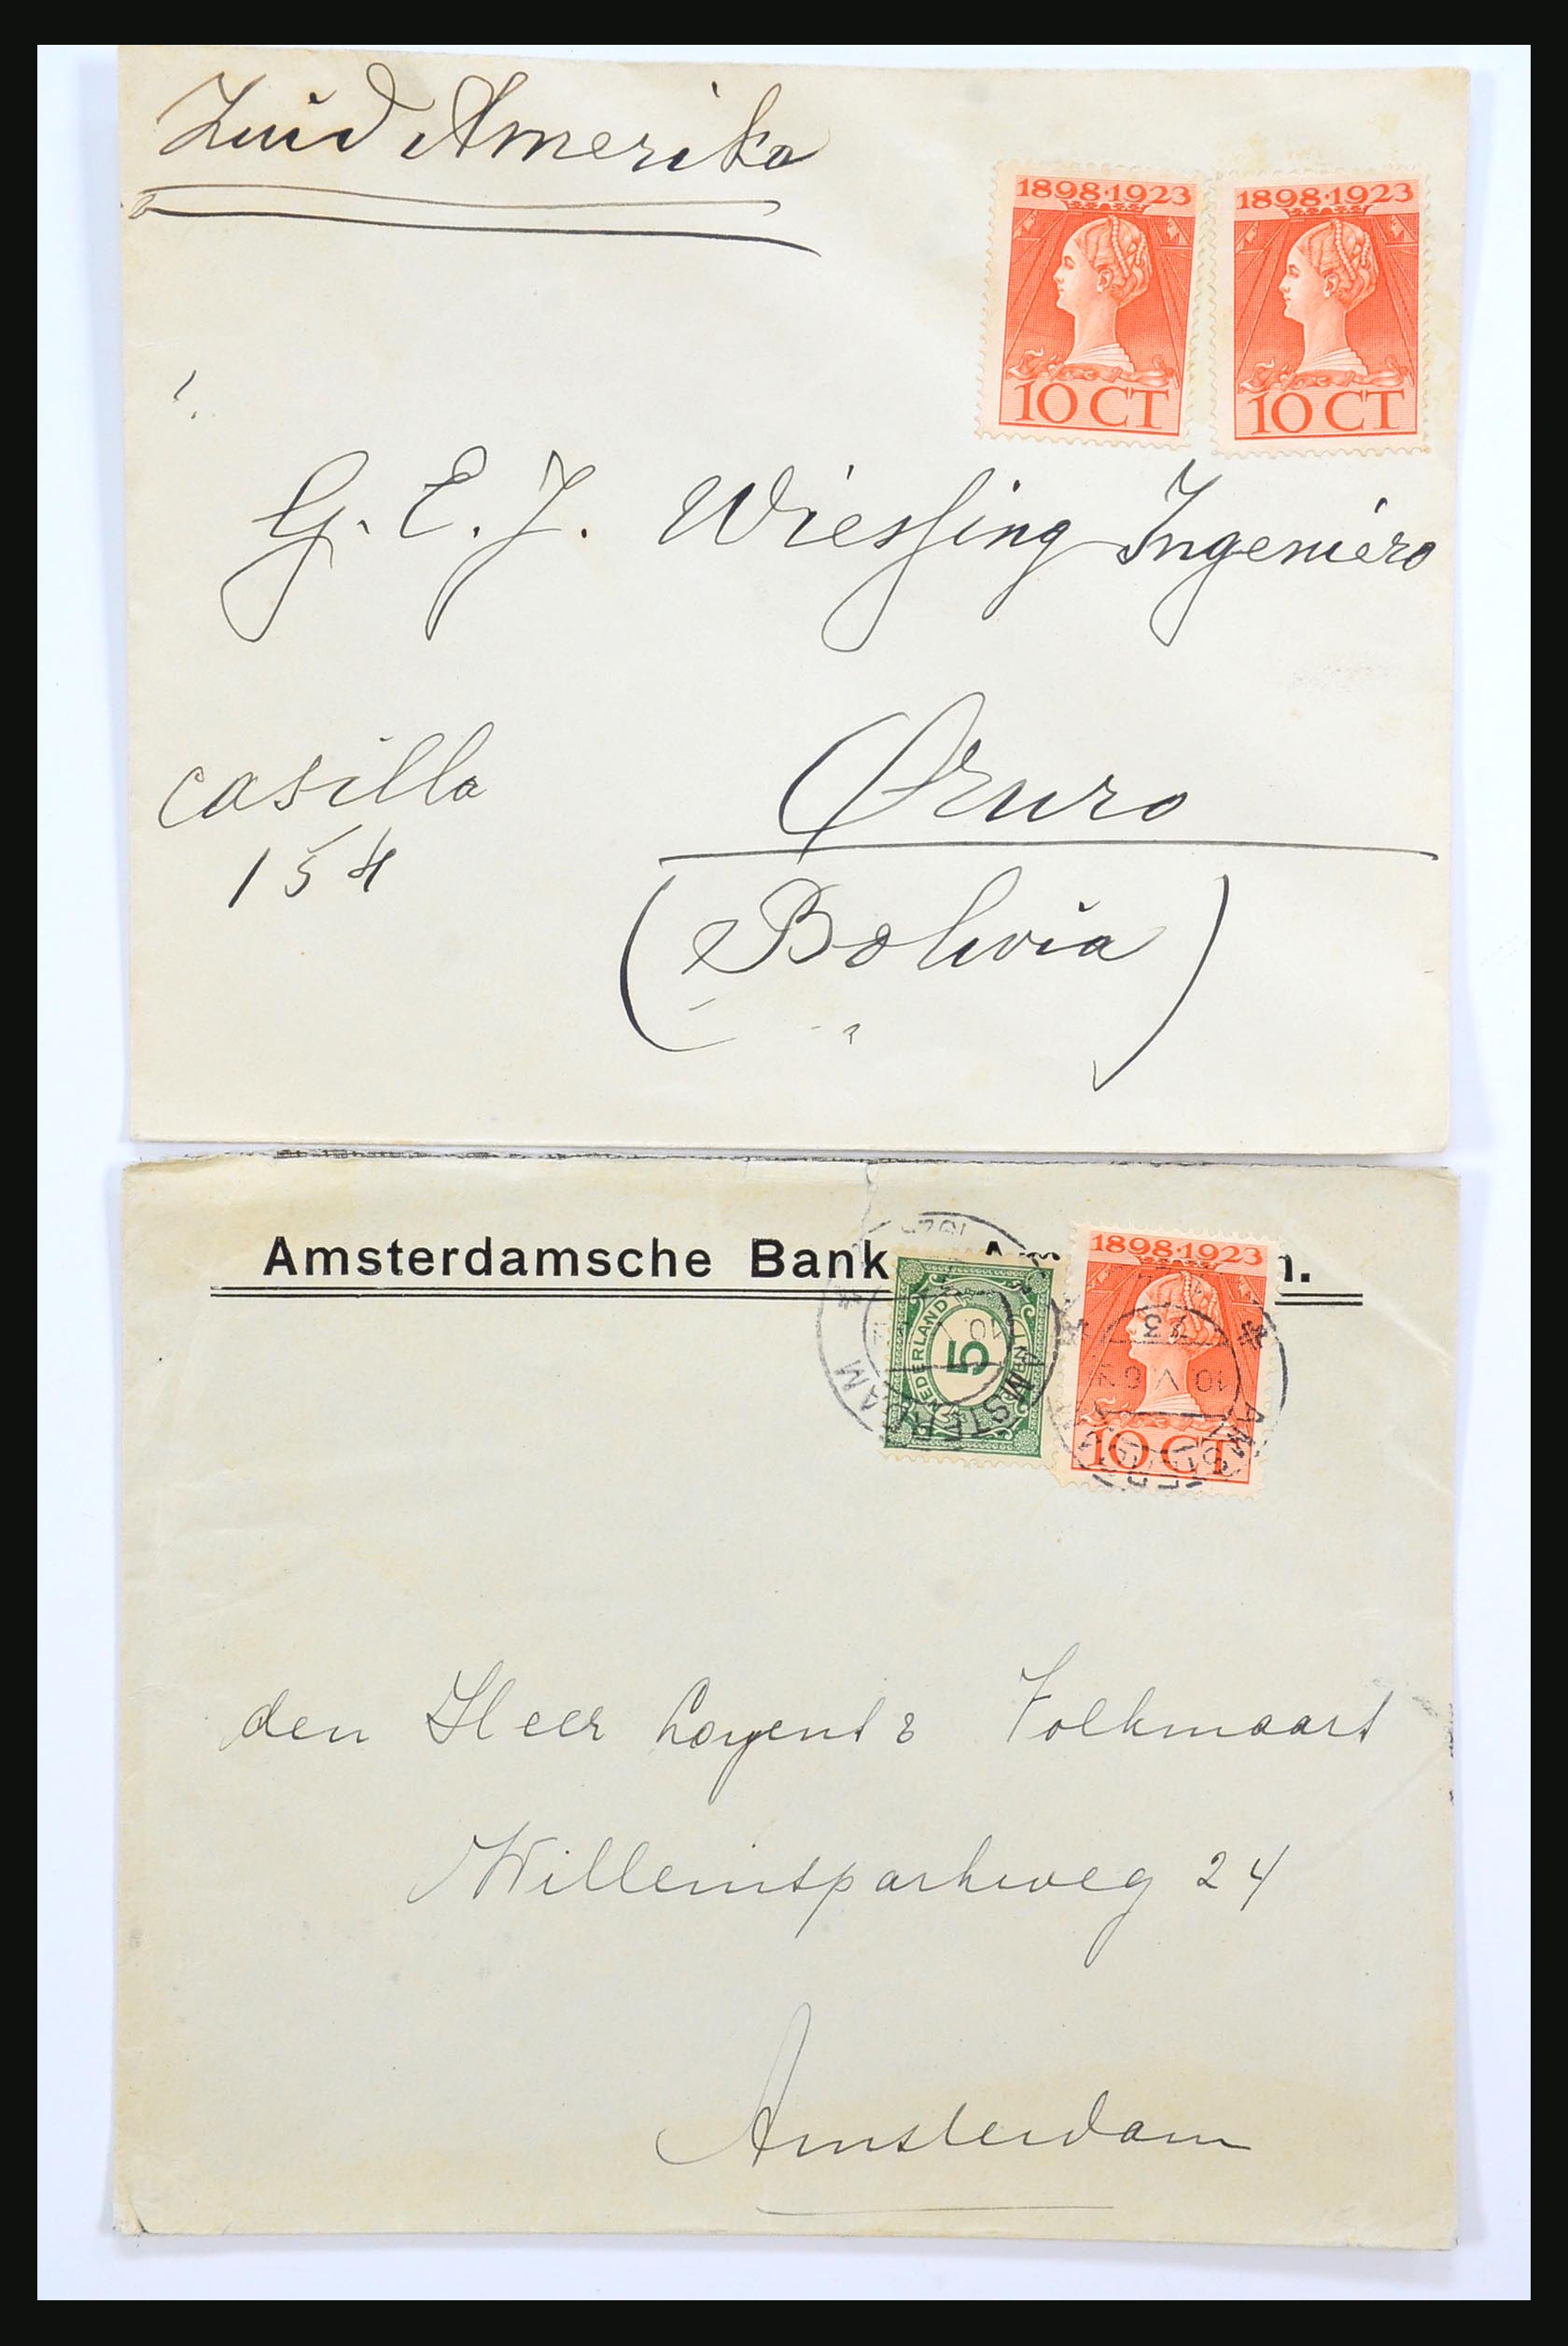 Zuid Amerika
1898·1923 1898·1923
10 CT 10 CT
G. E. J. Wiessing Ingeniero
casilla Oruro
154
(Bolivia)
Amsterdamsche Bank
1898·1923
NEDERLAND
5
10 CT
AMSTERDAM
den Heer
Willemsparkweg 24
Amsterdam